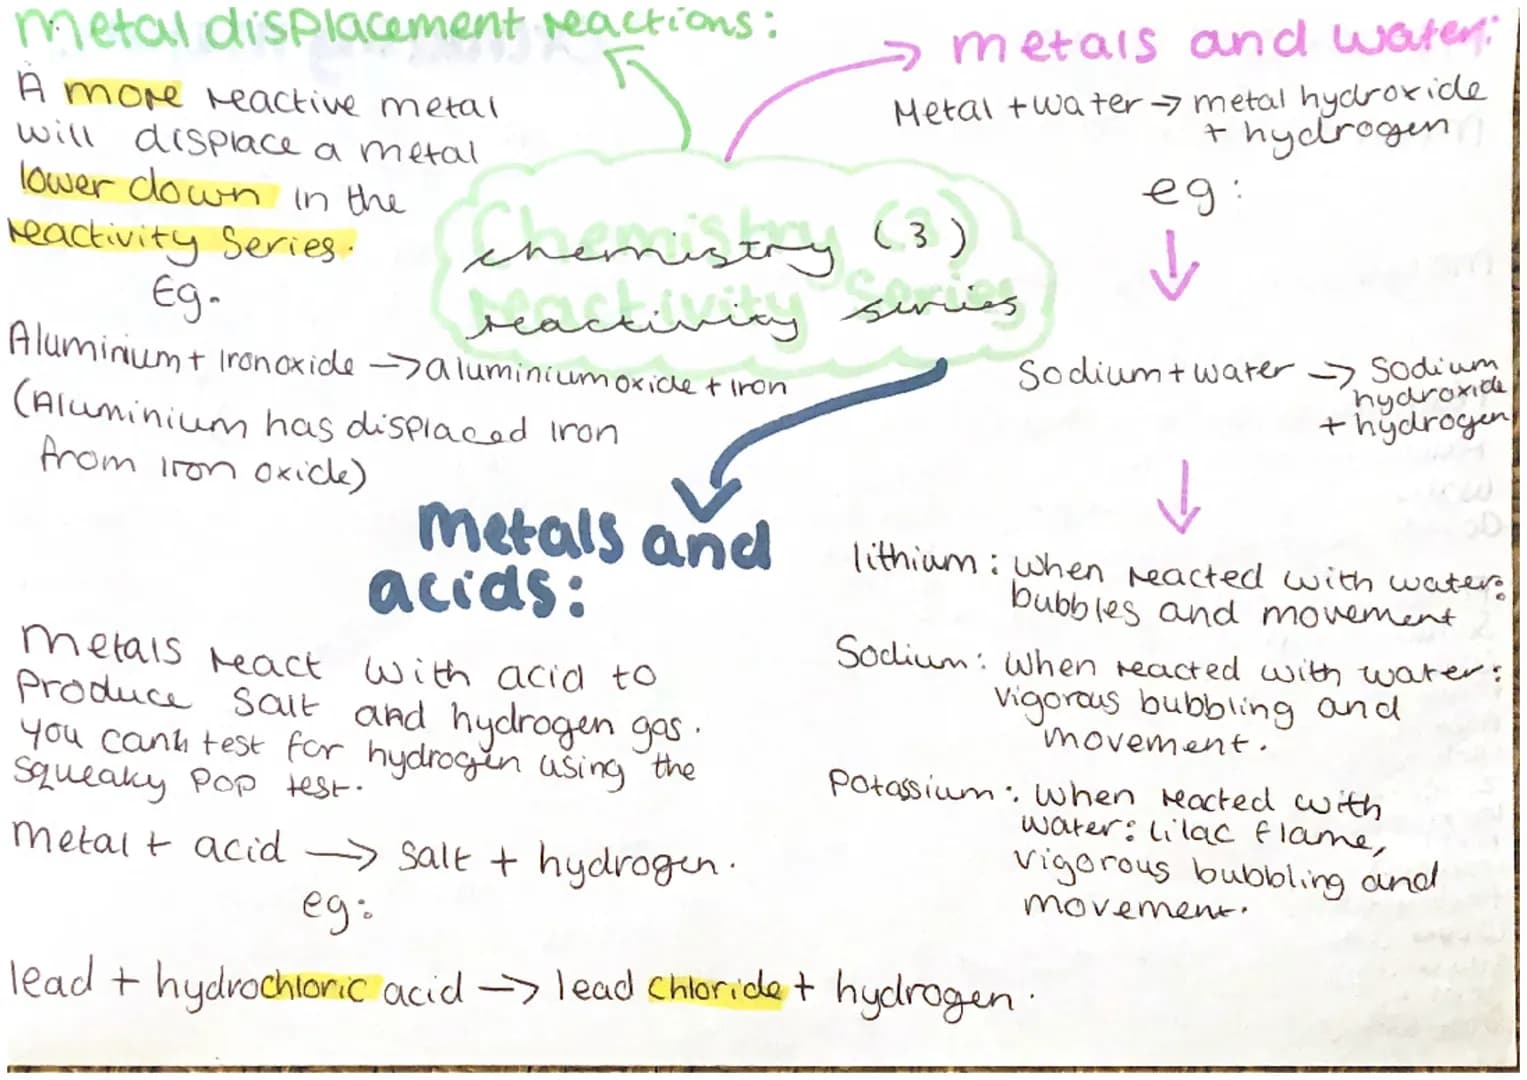 Metal displacement reactions:
A more reactive metal
will displace a metal
lower down in the
reactivity Series.
Eg.
Aluminium + Iron oxide → aluminium oxide + Iron
(Aluminium has displaced Iron
from iron oxide)
Chemistry (3)
reactivity series
metals and water:
Metal + water → metal hydroxide
+ hydrogen
eg:
Sodium + water → Sodium
hydroxide
+ hydrogen
lithium: when reacted with water:
bubbles and movement
Sodium: when reacted with water:
vigorous bubbling and
movement.
Potassium: when reacted with
water: lilac flame,
vigorous bubbling and
movement.
metals and
acids:
metals react with acid to
produce salt and hydrogen gas.
you can test for hydrogen using the
squeaky pop test.
metal + acid → salt + hydrogen.
eg:
lead + hydrochloric acid → lead chloride + hydrogen.